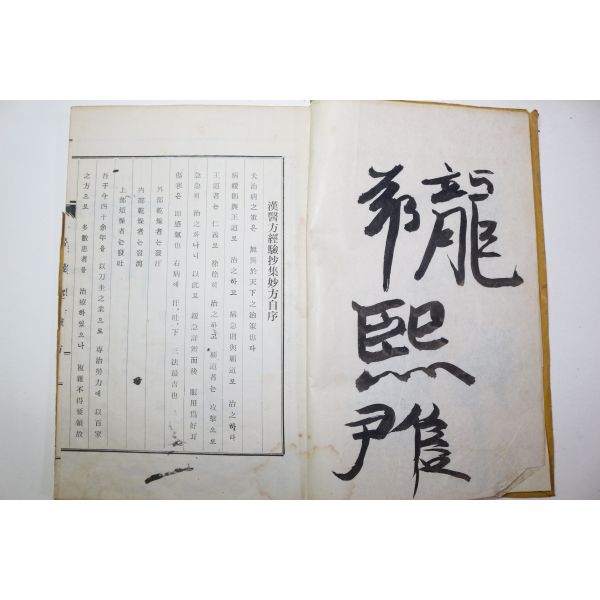 龍
熙
尹
漢醫方經驗抄集妙方自序
夫治病之策은 無異於天下之治策也라
病緩則與王道로 治之하고 病急則與覇道로 治之하라
王道者는 仁義로 徐徐히 治之하고 覇道者는 攻擊으로
急急히 治之하나니 以此로 緩急詳辨而後 服用爲好耳
傷寒은 即感氣也 右病에 汗,吐,下 三法最吉也
外部乾燥者는發汗
內部乾燥者는發瀉
上部煩燥者는發吐
吾于今四十余年을 以刀圭之業으로 專治勞力에 以百家
之方으로 多數患者를 治療하였으나 複雜不得要領故